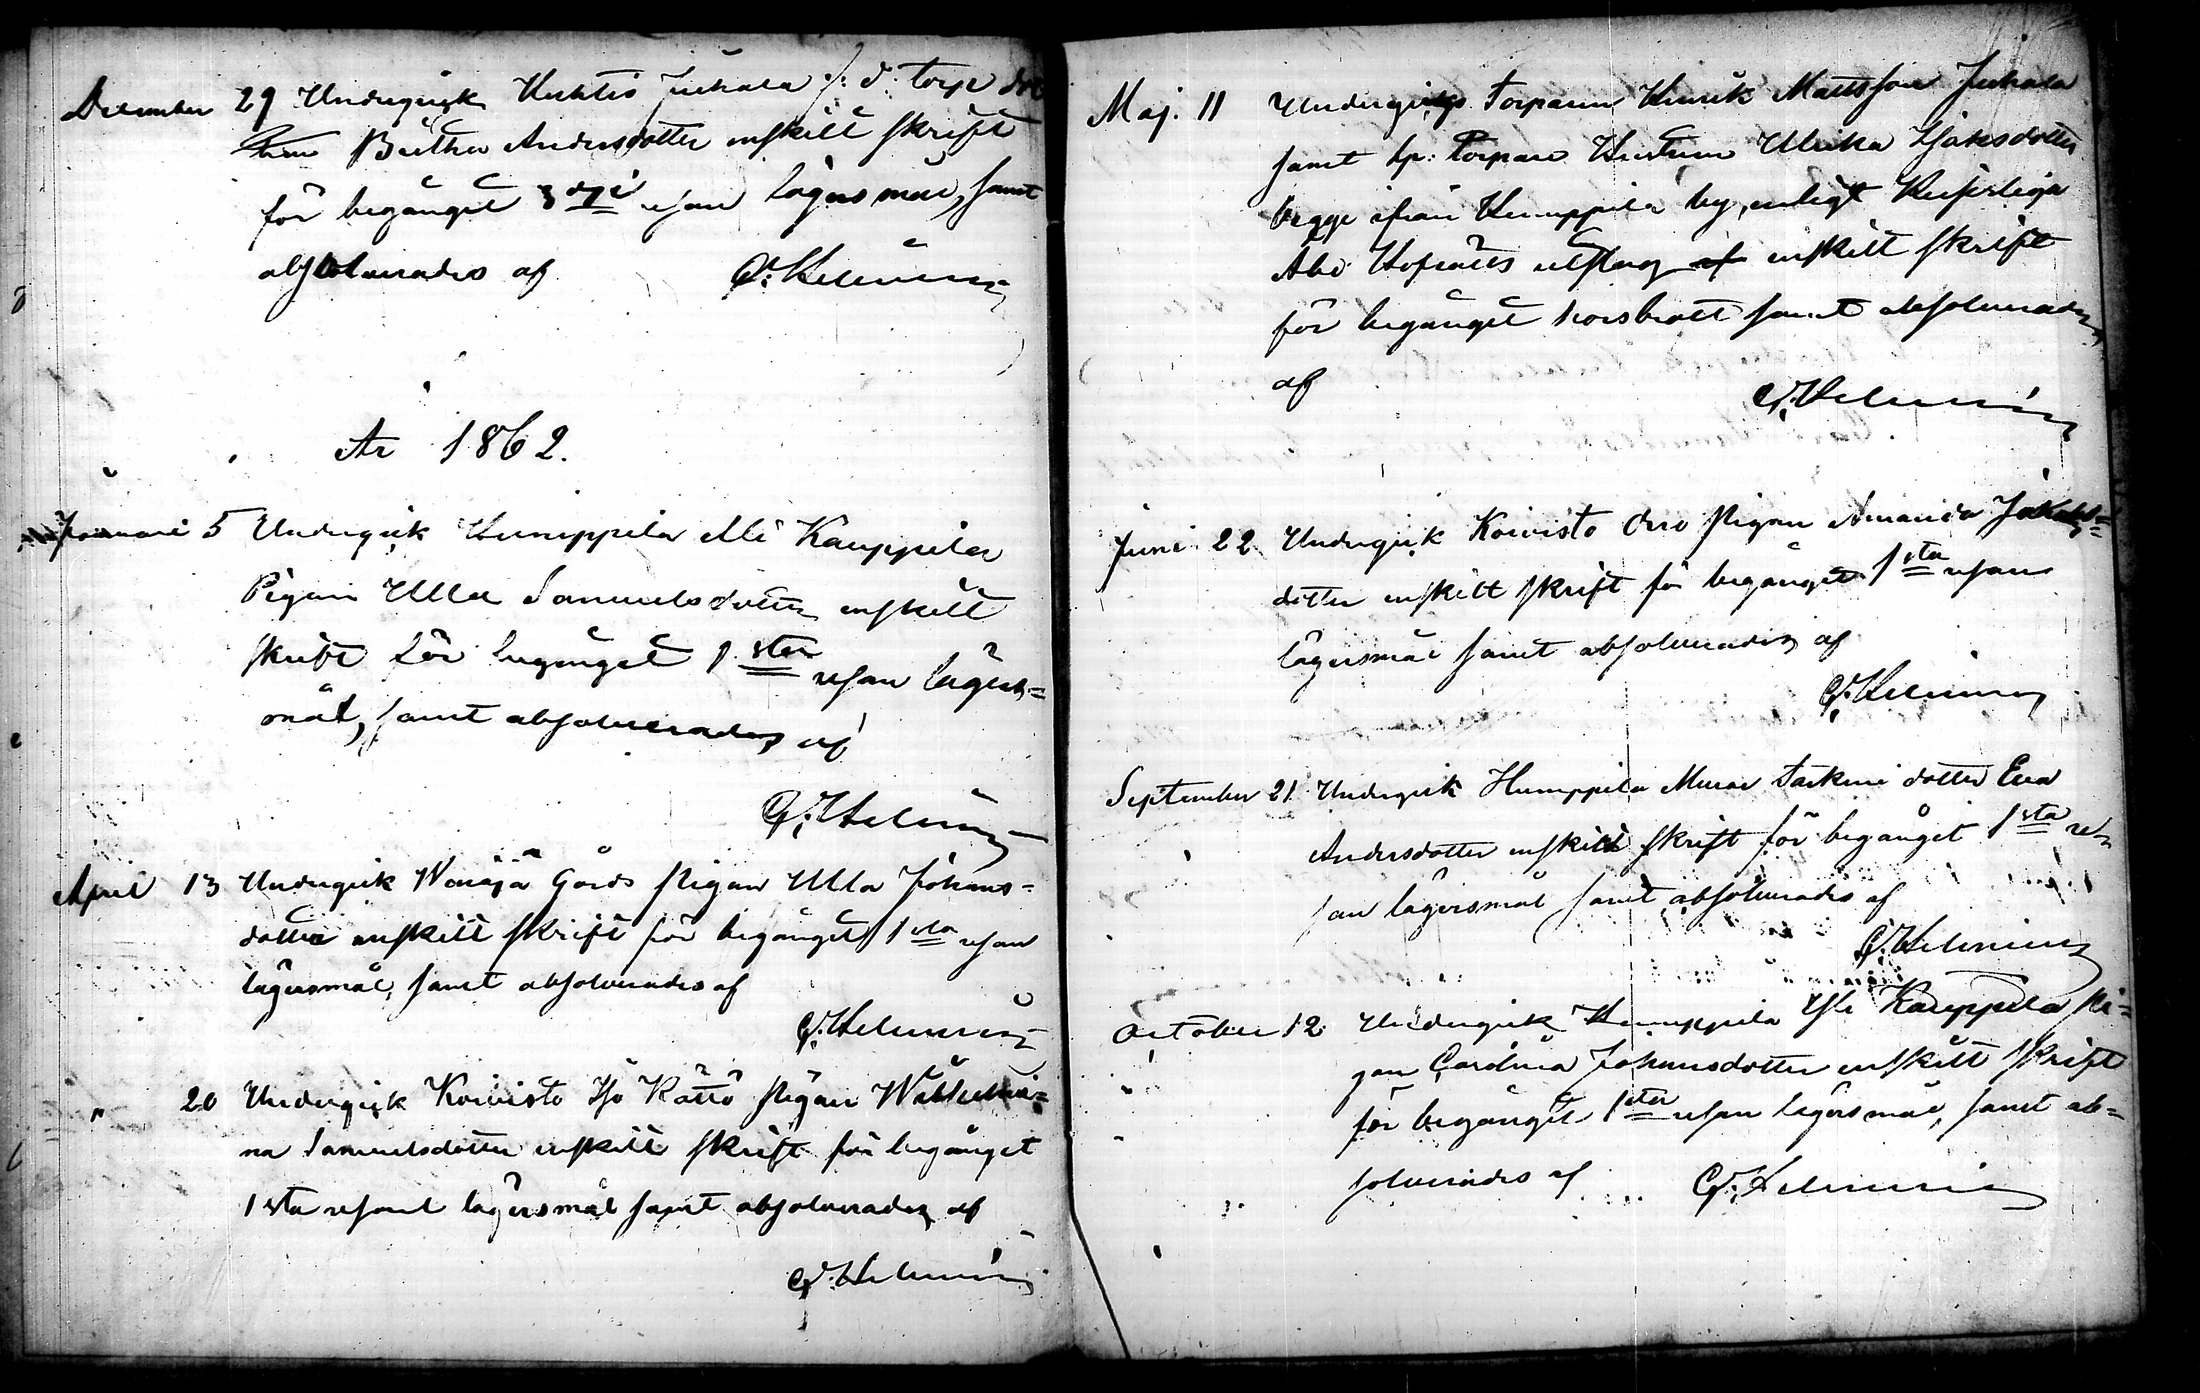 December 29 Undergick Huhtis Juhala f: d: torp dot
Bertha Andersdotter enskilt skrift
för begånget 3dje resan lägersmål, samt
absolverades af G: Helenius
År 1862.
Januari 5 Undergick Humppila Kauppila
Pigan Ulla Samuelsdotter enskilt
skrift för begånget 1sta resan lägers=
mål, samt absolverades af
G: Helenius
April 13 Undergick Wenäjä Gårds Pigan Ulla Johans=
dotter enskilt skrift för begånget 1sta resan
lägersmål, samt absolverades af
G: Helenius
" 20 Undergick Koivisto Pigan Wilhelmi=
na Samuelsdotter enskilt skrift för begånget
1sta resan lägersmål samt absolverades af
G: Helenius
Maj. 11 Torparen Henrik Mattsson Juhala
samt Torpare Hustrun Ulrika Isaksdotter
begge ifrån Humppila by, enligt Kejserliga
Åbo Hofrätts utslag enskilt skrift
för begånget horsbrott samt absolverades
af
G: Helenius
Juni 22 Undergick Koivisto Pigan Amanda Jakobs=
dotter enskilt skrift för begånget 1sta resan
lägersmål samt absolverades af
G: Helenius
September 21 Undergick Humppila Murar dotter Eva
Andersdotter enskilt skrift för begånget 1sta re=
san lägersmål samt absolverades af
G: Helenius
October 12 Undergick Humppila Kauppila Pi=
gan Carolina Johansdotter enskilt skrift
för begånget 1sta resan lägersmål, samt ab=
solverades af G: Helenius